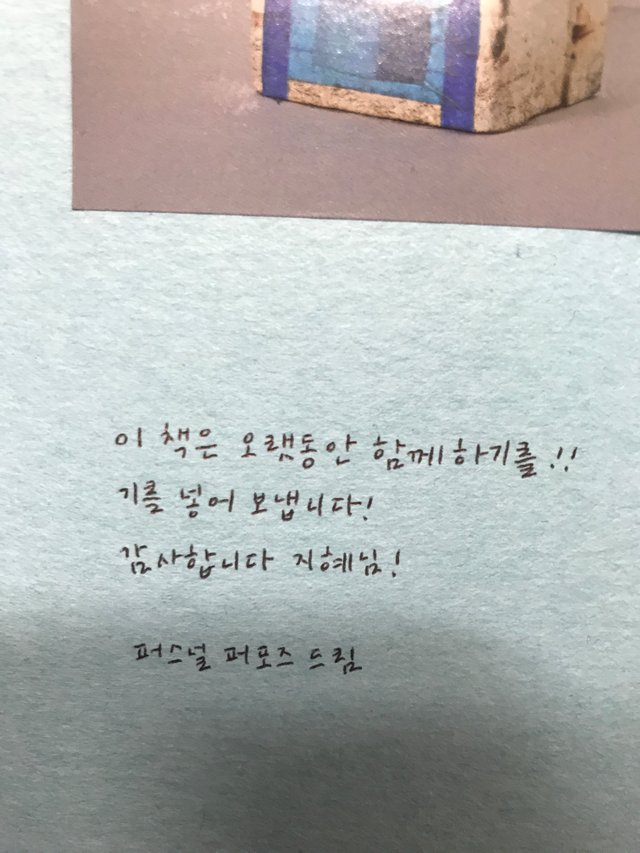 이 책은 오랫동안 함께하기를!!
기를 넣어 보냅니다!
감사합니다 지혜님!
퍼스널 퍼포즈 드림